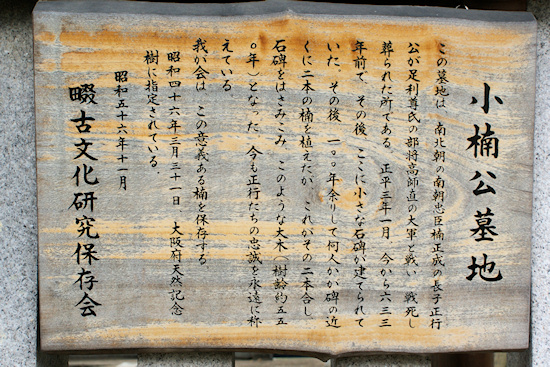 小楠公墓地
この墓地は 南北朝の南朝忠臣楠正成の長子正行
公が足利尊氏の部将高師直の大軍と戦い 戦死し
葬られた所である 正平三年一月 今から六三三
年前で、その後 ここに小さな石碑が建てられて
いた。その後、一〇〇年余りして何人かが碑の近
くに二本の楠を植えたが、これがその二本合し
石碑をはさみこみ、このような大木（樹齢約五五
〇年）となった 今も正行たちの忠誠を永遠に称
えている。
我が会は この意義ある楠を保存する
昭和四十六年三月三十一日 大阪府天然記念
樹に指定されている。
昭和五十六年十一月
畷古文化研究保存会